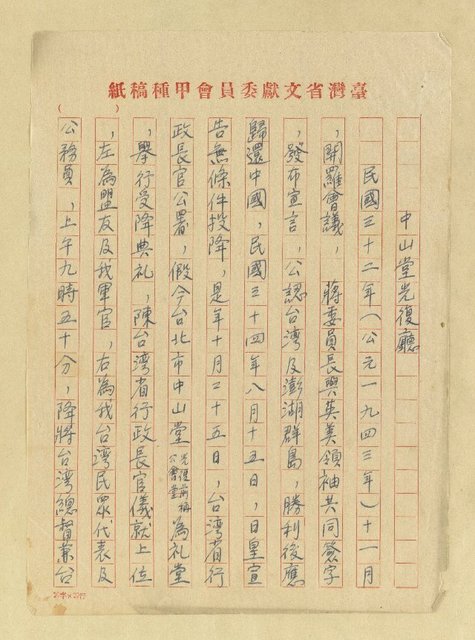 臺灣省文獻委員會甲種稿紙
（　　）
中山堂光復廳
民國三十二年（公元一九四三年）十一月
，開羅會議，　蔣委員長與英美領袖共同簽字
，發布宣言，公認台湾及澎湖群島，勝利後應
歸還中國，民國三十四年八月十五日，日皇宣
告無條件投降，是年十月二十五日，台湾省行
政長官公署，假今台北市中山堂光復前稱公會堂為礼堂
，舉行受降典礼，陳台湾省行政長官儀就上位
，左為盟友及我軍官，右為我台湾民眾代表及
公務員，上午九時五十分，降將台湾總督兼台